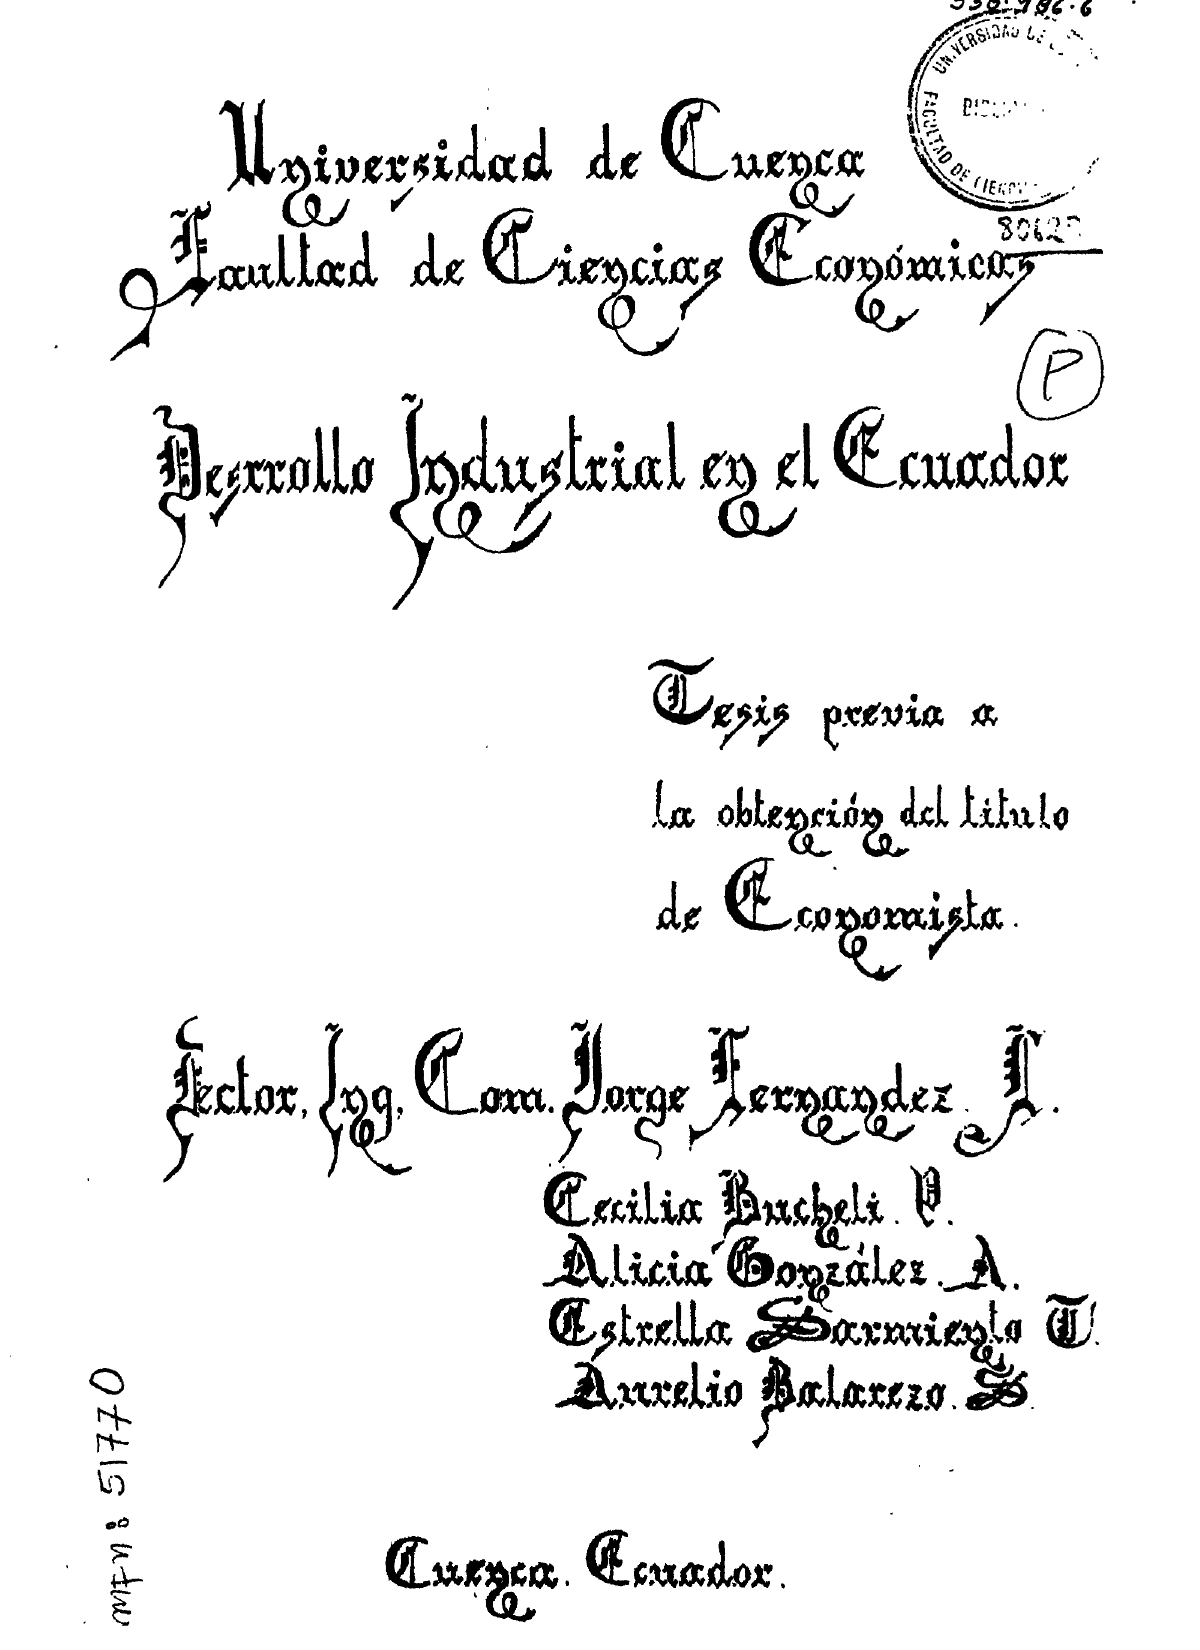 338.986.6
UNIVERSIDAD DE
FACULTAD DE CIENCIAS
80620
Universidad de Cuenca
Faultad de Ciencias Económicas
P
Desrrollo Industrial en el Ecuador
Tesis previa a
la obtención del titulo
de Economista.
Rector, Ing, Com. Jorge Fernandez. I.
Cecilia Bucheli. V.
Alicia González. A.
Estrella Sarmiento T.
Aurelio Balarezo. S.
Cuenca. Ecuador.
MFN: 51770